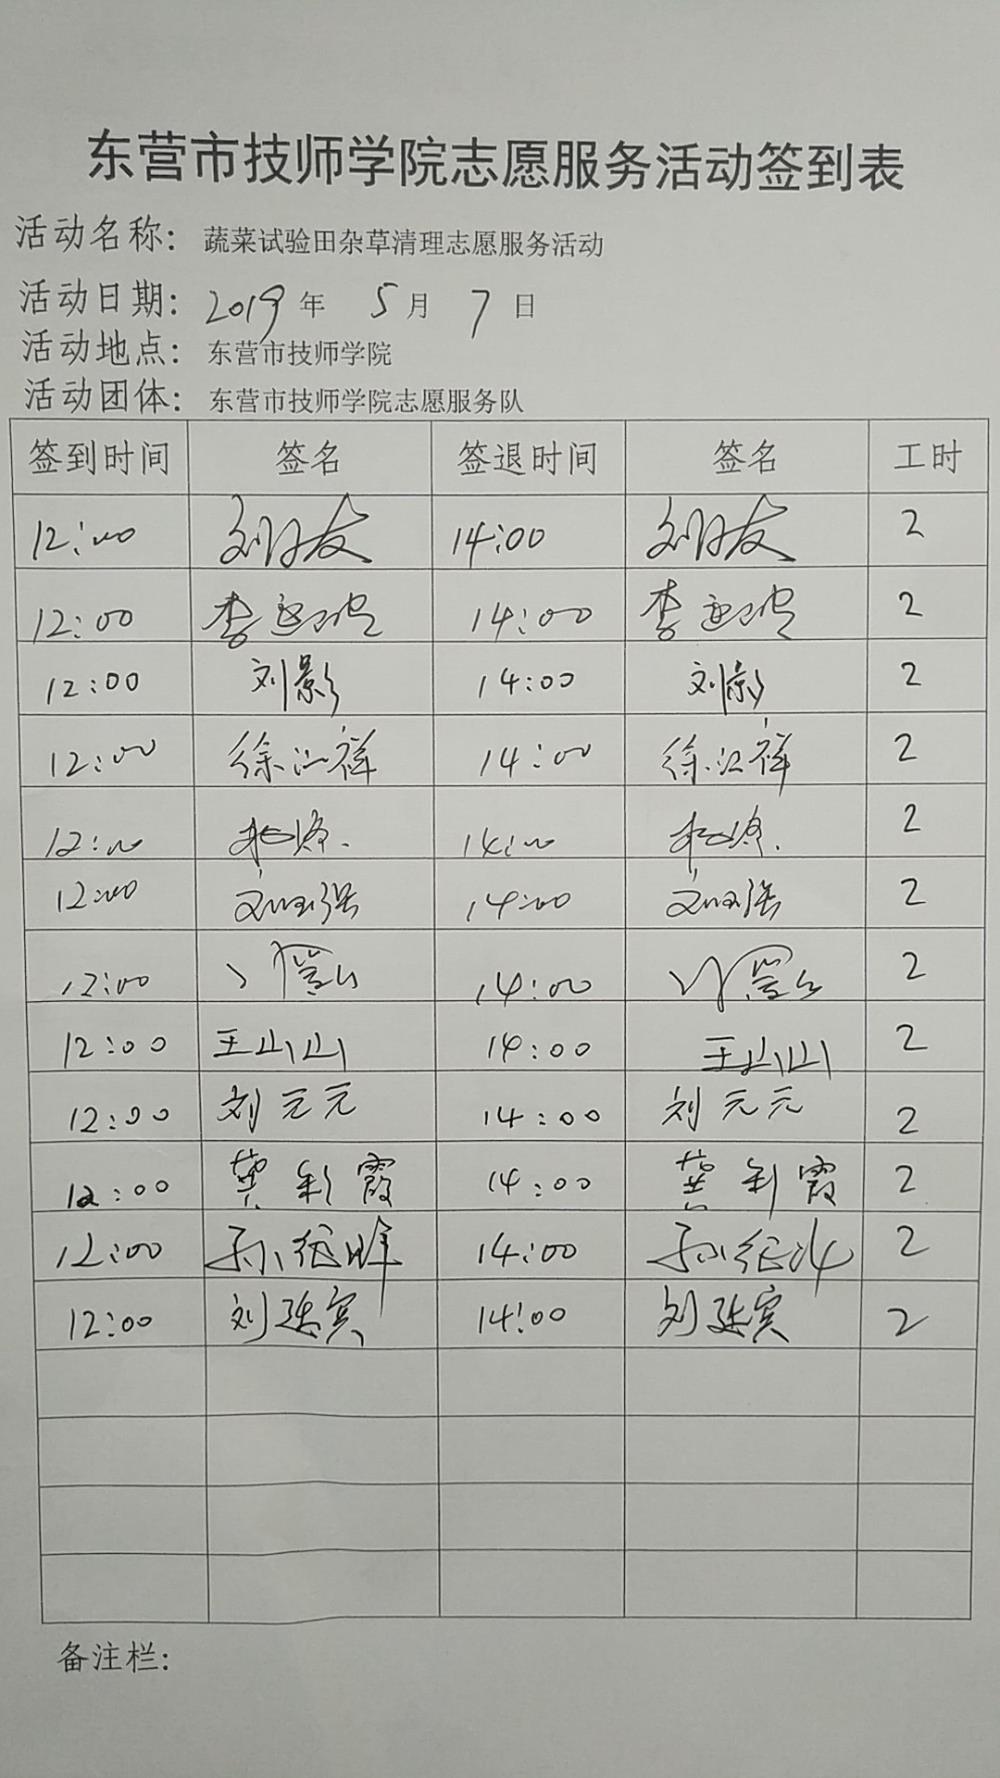 东营市技师学院志愿服务活动签到表
活动名称：蔬菜试验田杂草清理志愿服务活动
活动日期：2019年 5月 7日
活动地点：东营市技师学院
活动团体：东营市技师学院志愿服务队
签到时间 签名 签退时间 签名 工时
12:00 刘 友 14:00 刘 友 2
12:00 李 14:00 李 2
12:00 刘影 14:00 刘影 2
12:00 徐江祥 14:00 徐江祥 2
12:00 14:00 2
12:00 强 14:00 强 2
12:00 14:00 2
12:00 王山山 14:00 王山山 2
12:00 刘元元 14:00 刘元元 2
12:00 龚彩霞 14:00 龚彩霞 2
12:00 孙 14:00 孙 2
12:00 刘延宾 14:00 刘延宾 2
备注栏：